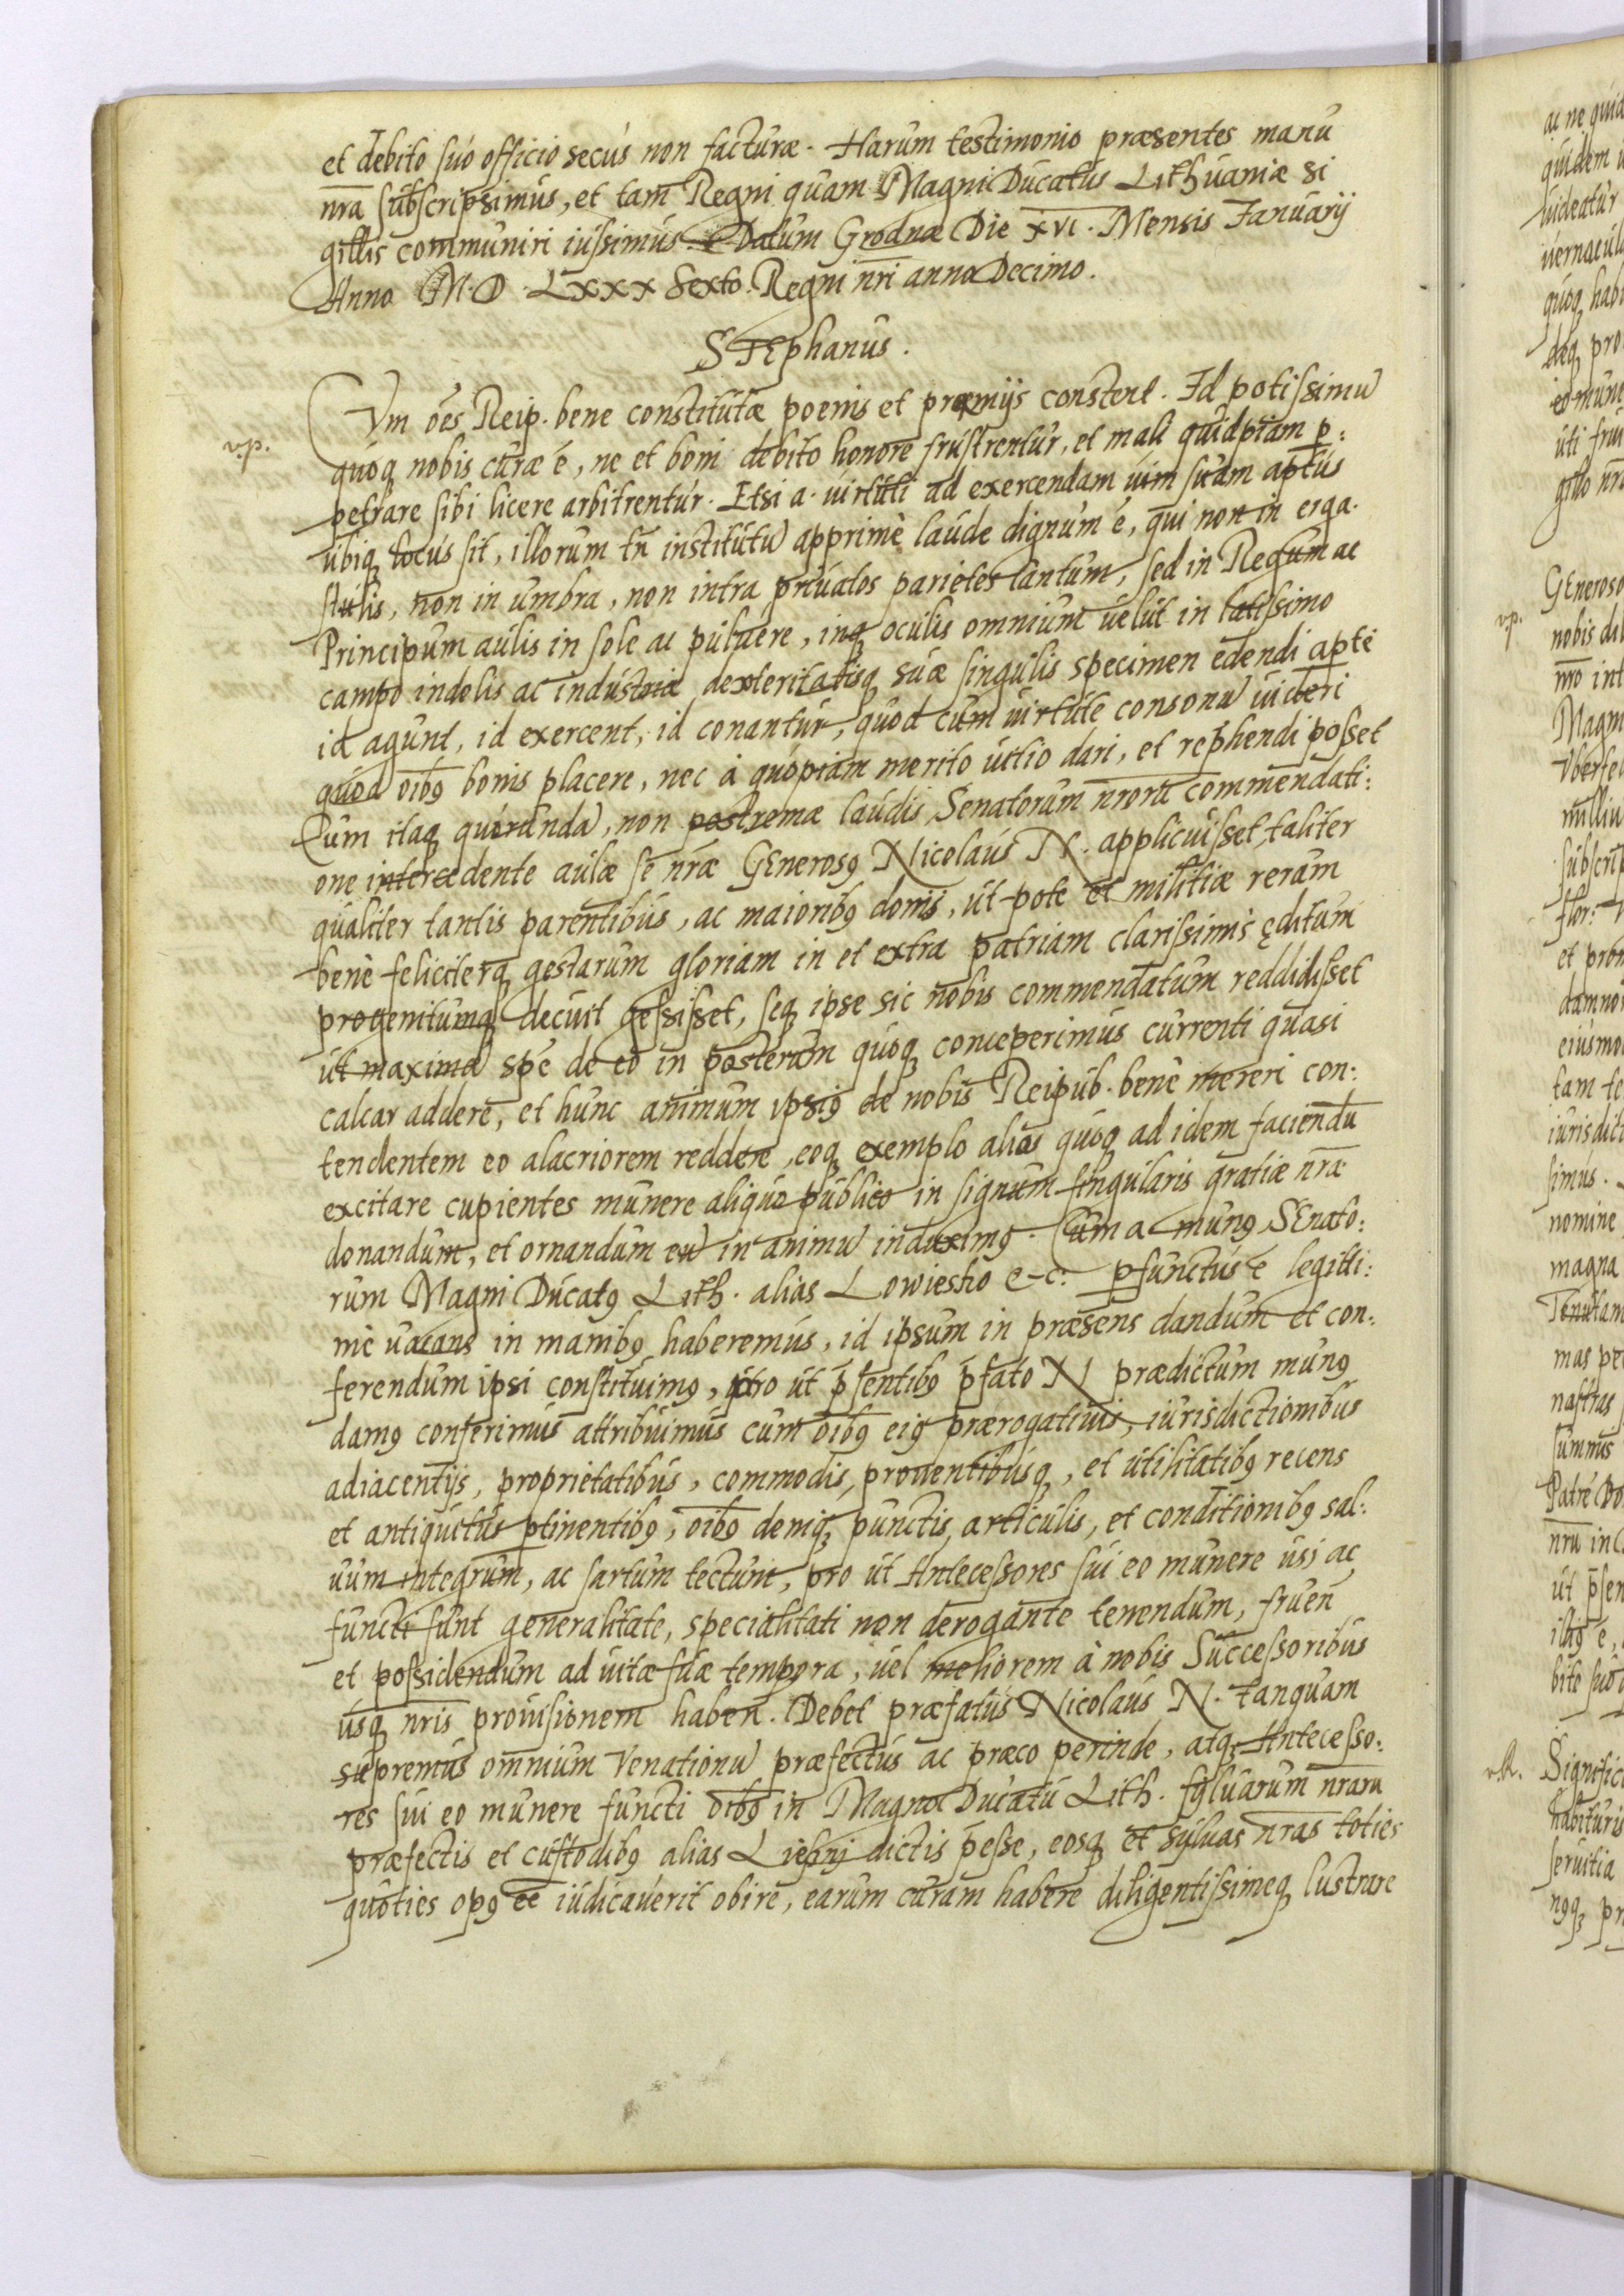 et debito suo officio secus non facturæ. Harum testimonio præsentes manu
nra subscripsimus, et tam Regni quam Magni Ducatus Lithuaniæ si
gillis communiri iussimus. Datum Grodnæ Die XVI. Mensis Januarij
Anno M.D.LXXX Sexto. Regni nri anno Decimo.
STEphanus.
CVm oẽs Reip. bene constitutæ poenis et præmijs constent. Id potissimũ
v.p.
quoq nobis curæ ẽ, ne et boni debito honore frustrentur, et mali quidpiam p:
petrare sibi licere arbitrentur. Etsi a. virtuti ad exercendam uim suam aptus
ubiq locus sit, illorum tñ institutũ apprimè laude dignum ẽ, qui non in erga.
stulis, non in umbra, non intra priuatos parietes tantum, sed in Regum ac
Principum aulis in sole ac puluere, inq oculis omnium uelut in latissimo
campo indolis ac industriæ dexteritatisq suæ singulis specimen edendi apte
id agunt, id exercent, id conantur, quod cum uirtute consonũ uideri
quod oĩbꝰ bonis placere, nec à quopiam merito uitio dari, et rephendi posset
Cum itaq quorundã, non postremæ laudis Senatorum nrorũ commendati:
one intercedente aulæ se nræ GEnerosꝰ Nicolaus N. applicuisset, taliter
qualiter tantis parentibus, ac maioribꝰ domi, ut pote et militiæ rerum
benè feliciterq gestarum gloriam in et extra patriam clarissimis ęditum
progenitumq decuit gessisset, seq ipse sic nobis commendatum reddidisset
ut maximã spẽ de eo in posterum quoq conceperimus currenti quasi
calcar addere, et hunc animum ipsiꝰ de nobis Reipub. benè mereri con:
tendentem eo alacriorem reddere, eoq exemplo alios quoq ad idem faciendũ
excitare cupientes munere aliquo publico in signum singularis gratiæ nræ
donandum, et ornandum eũ in animũ induximꝰ. Cum a munꝰ SEnato:
rum Magni Ducatꝰ Lith. alias Lowiestio &c. pfunctus ẽ legitti:
mè uacans in manibꝰ haberemus, id ipsum in præsens dandum et con:
ferendum ipsi constituimꝰ, pro ut psentibꝰ pfato N prædictum munꝰ
damꝰ conferimus attribuimus cum oĩbꝰ eiꝰ prærogatiuis, iurisdictionibus
adiacentijs, proprietatibus, commodis, prouentibusq, et utilitatibꝰ recens
et antiquitus ptinentibꝰ, oĩbꝰ deniq punctis, articulis, et conditionibꝰ sal:
uum integrum, ac sartum tectum, pro ut Antecessores sui eo munere usi ac
functi sunt generalitate, specialitati non derogante tenendum, fruen
et possidendum ad uitæ suæ tempora, uel meliorem à nobis Successoribus
usq nris prouisionem haben. Debet præfatus Nicolaus N. tanquam
supremus omnium Venationũ præfectus ac præco perinde, atq Antecesso:
res sui eo munere functi oĩbꝰ in Magno Ducatu Lith. syluarum nrarũ
præfectis et custodibꝰ alias Liesnij dictis pesse, eosq et syluas nras toties
quoties opꝰ eẽ iudicauerit obire, earum curam habere diligentissimeq lustrare